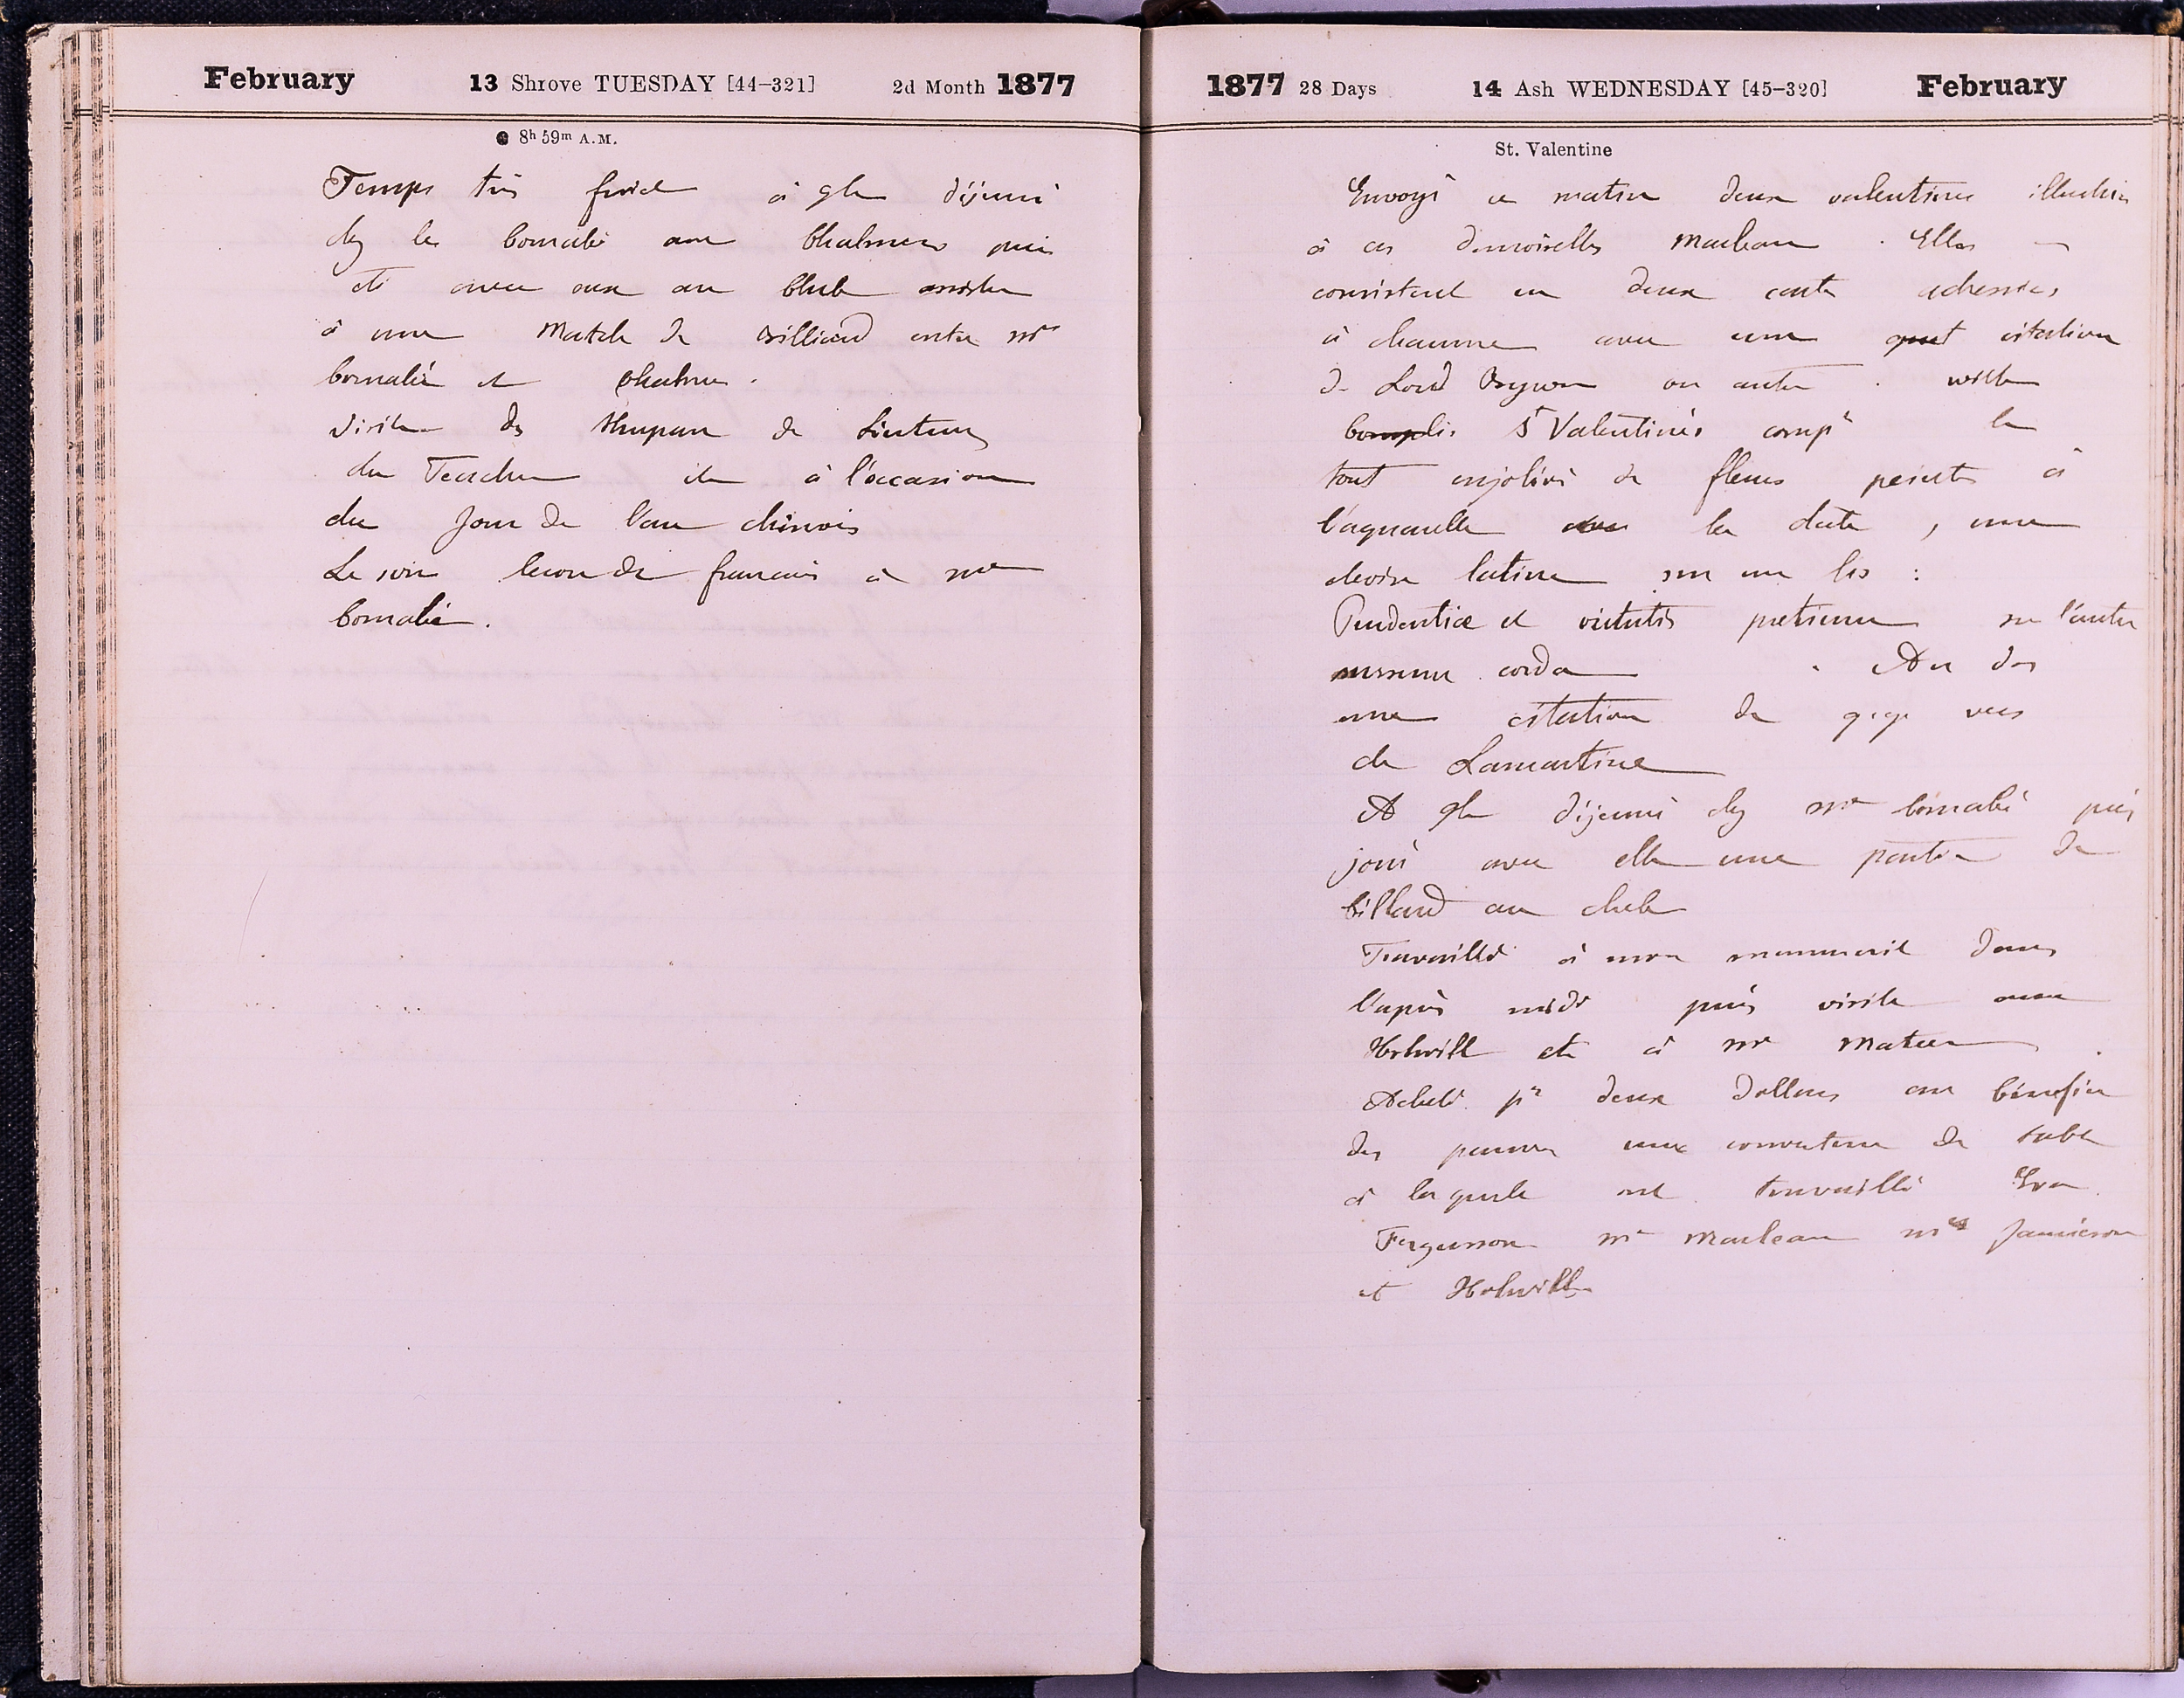 February 13 Shrove TUESDAY [44–321] 2d Month 1877
8h 59m A.M.
Temps très froid à 9h déjeuné
chez les Cornabé avec Chalmers puis
été avec eux au Club assister
à une Match de Billiard entre Mr
Cornabé et Chalmers.
Visite des de
du Teacher à l'occasion
du Jour de l'an chinois
Le soir lecon de francais à Mme
Cornabé.
1877 28 Days 14 Ash WEDNESDAY [45–320] February
St. Valentine
Envoyé ce matin deux valentines illustrées
à ces demoiselles Maclean. Elles
consistent en deux cartes adressées
à chacune avec une citation
de Lord Byron ou autre. with
St Valentine's compts le
tout enjolivé de fleurs peintes à
l'aquarelle avec la date, une
devise latine sur une les:
Prudentiae et virtutis pretium sur l'autre
sursum corda. Au dos
une citation de qq vers
de Lamartine
A 9h déjeuné chez Mr Cornabé puis
joué avec elle une partie de
billard au club
Travaillé à mon manuscrit dans
l'après midi puis visite aux
Holwill etc à Mr Mateer.
Acheté pr deux Dollars au bénéfice
des pauvres une couverture de table
à laquelle ont travaillé Eva
Fergusson Me Maclean Mes Jamieson
et Holwill